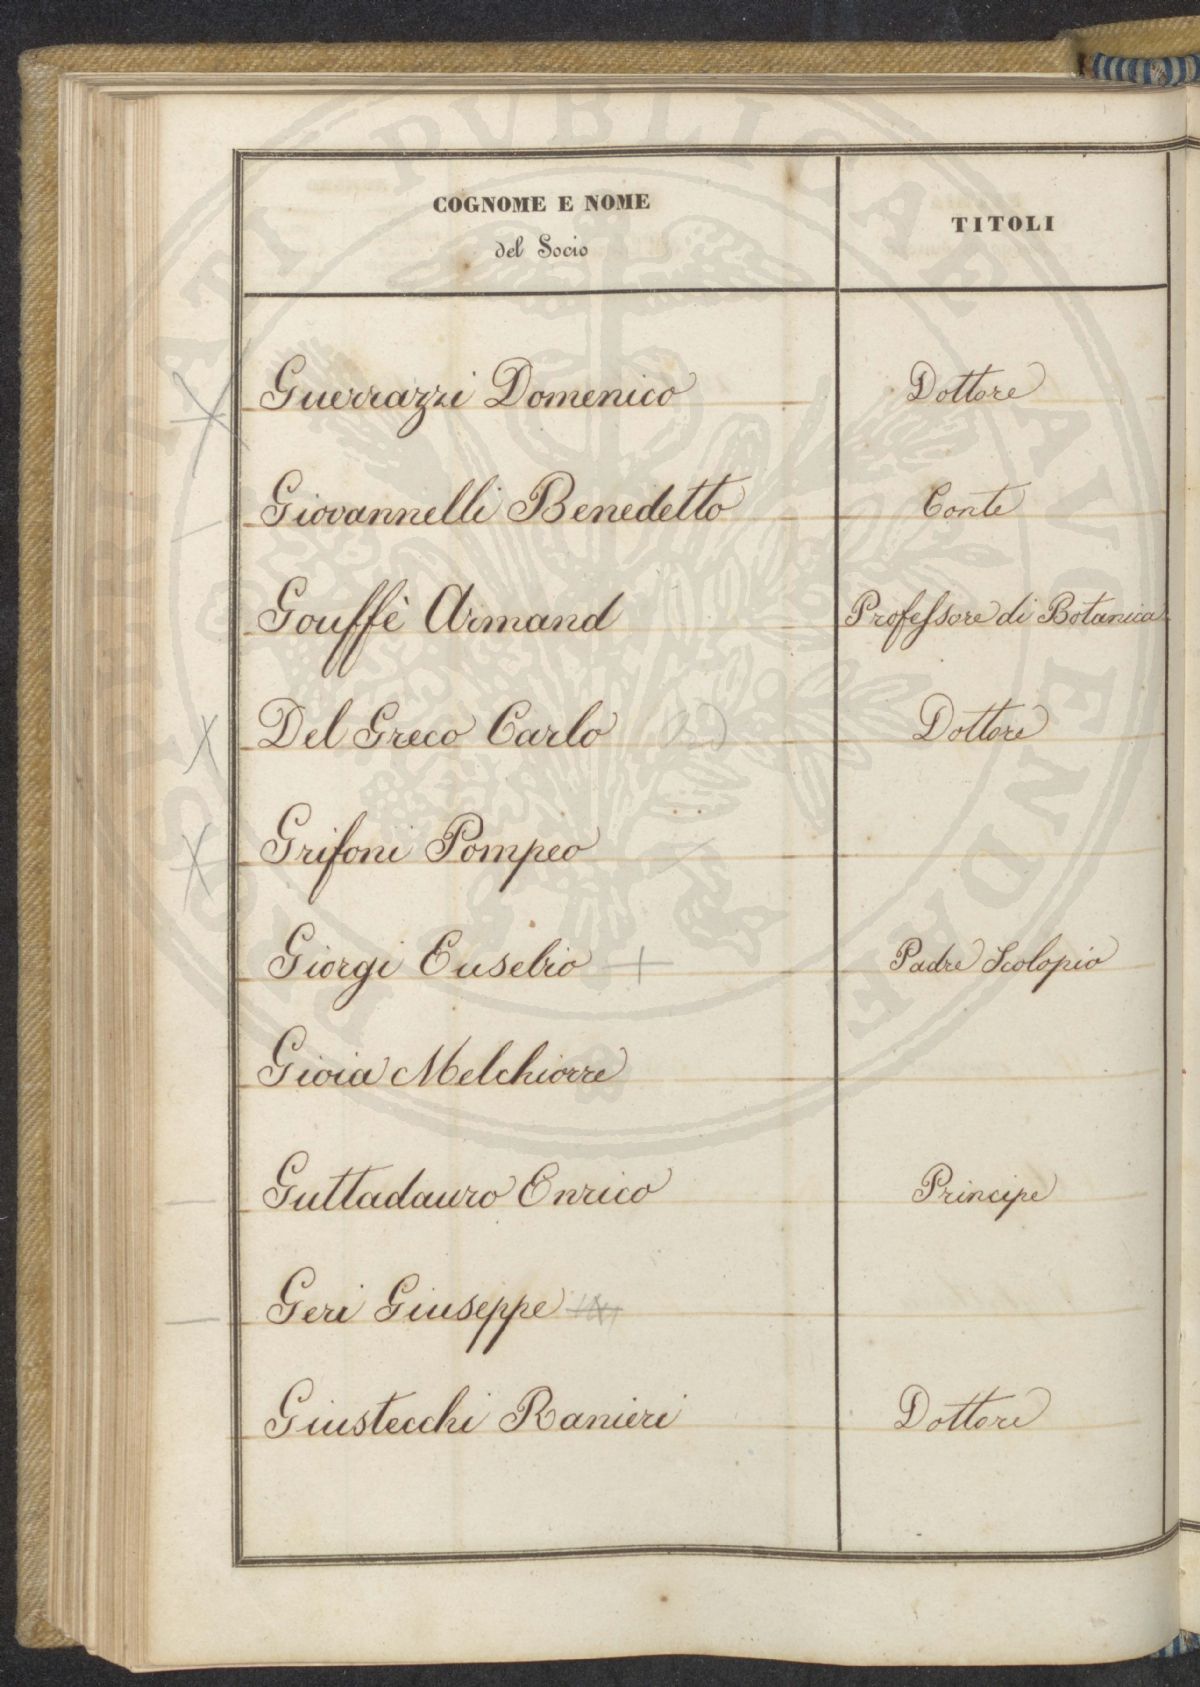 COGNOME E NOME
del Socio
TITOLI
Guerrazzi Domenico Dottore
Giovannelli Benedetto Conte
Gouffè Armand Professore di Botanica
Del Greco Carlo Dottore
Grifoni Pompeo
Giorgi Eusebio + Padre Scolopio
Gioia Melchiorre
Guttadauro Enrico Principe
Geri Giuseppe
Giustecchi Ranieri Dottore